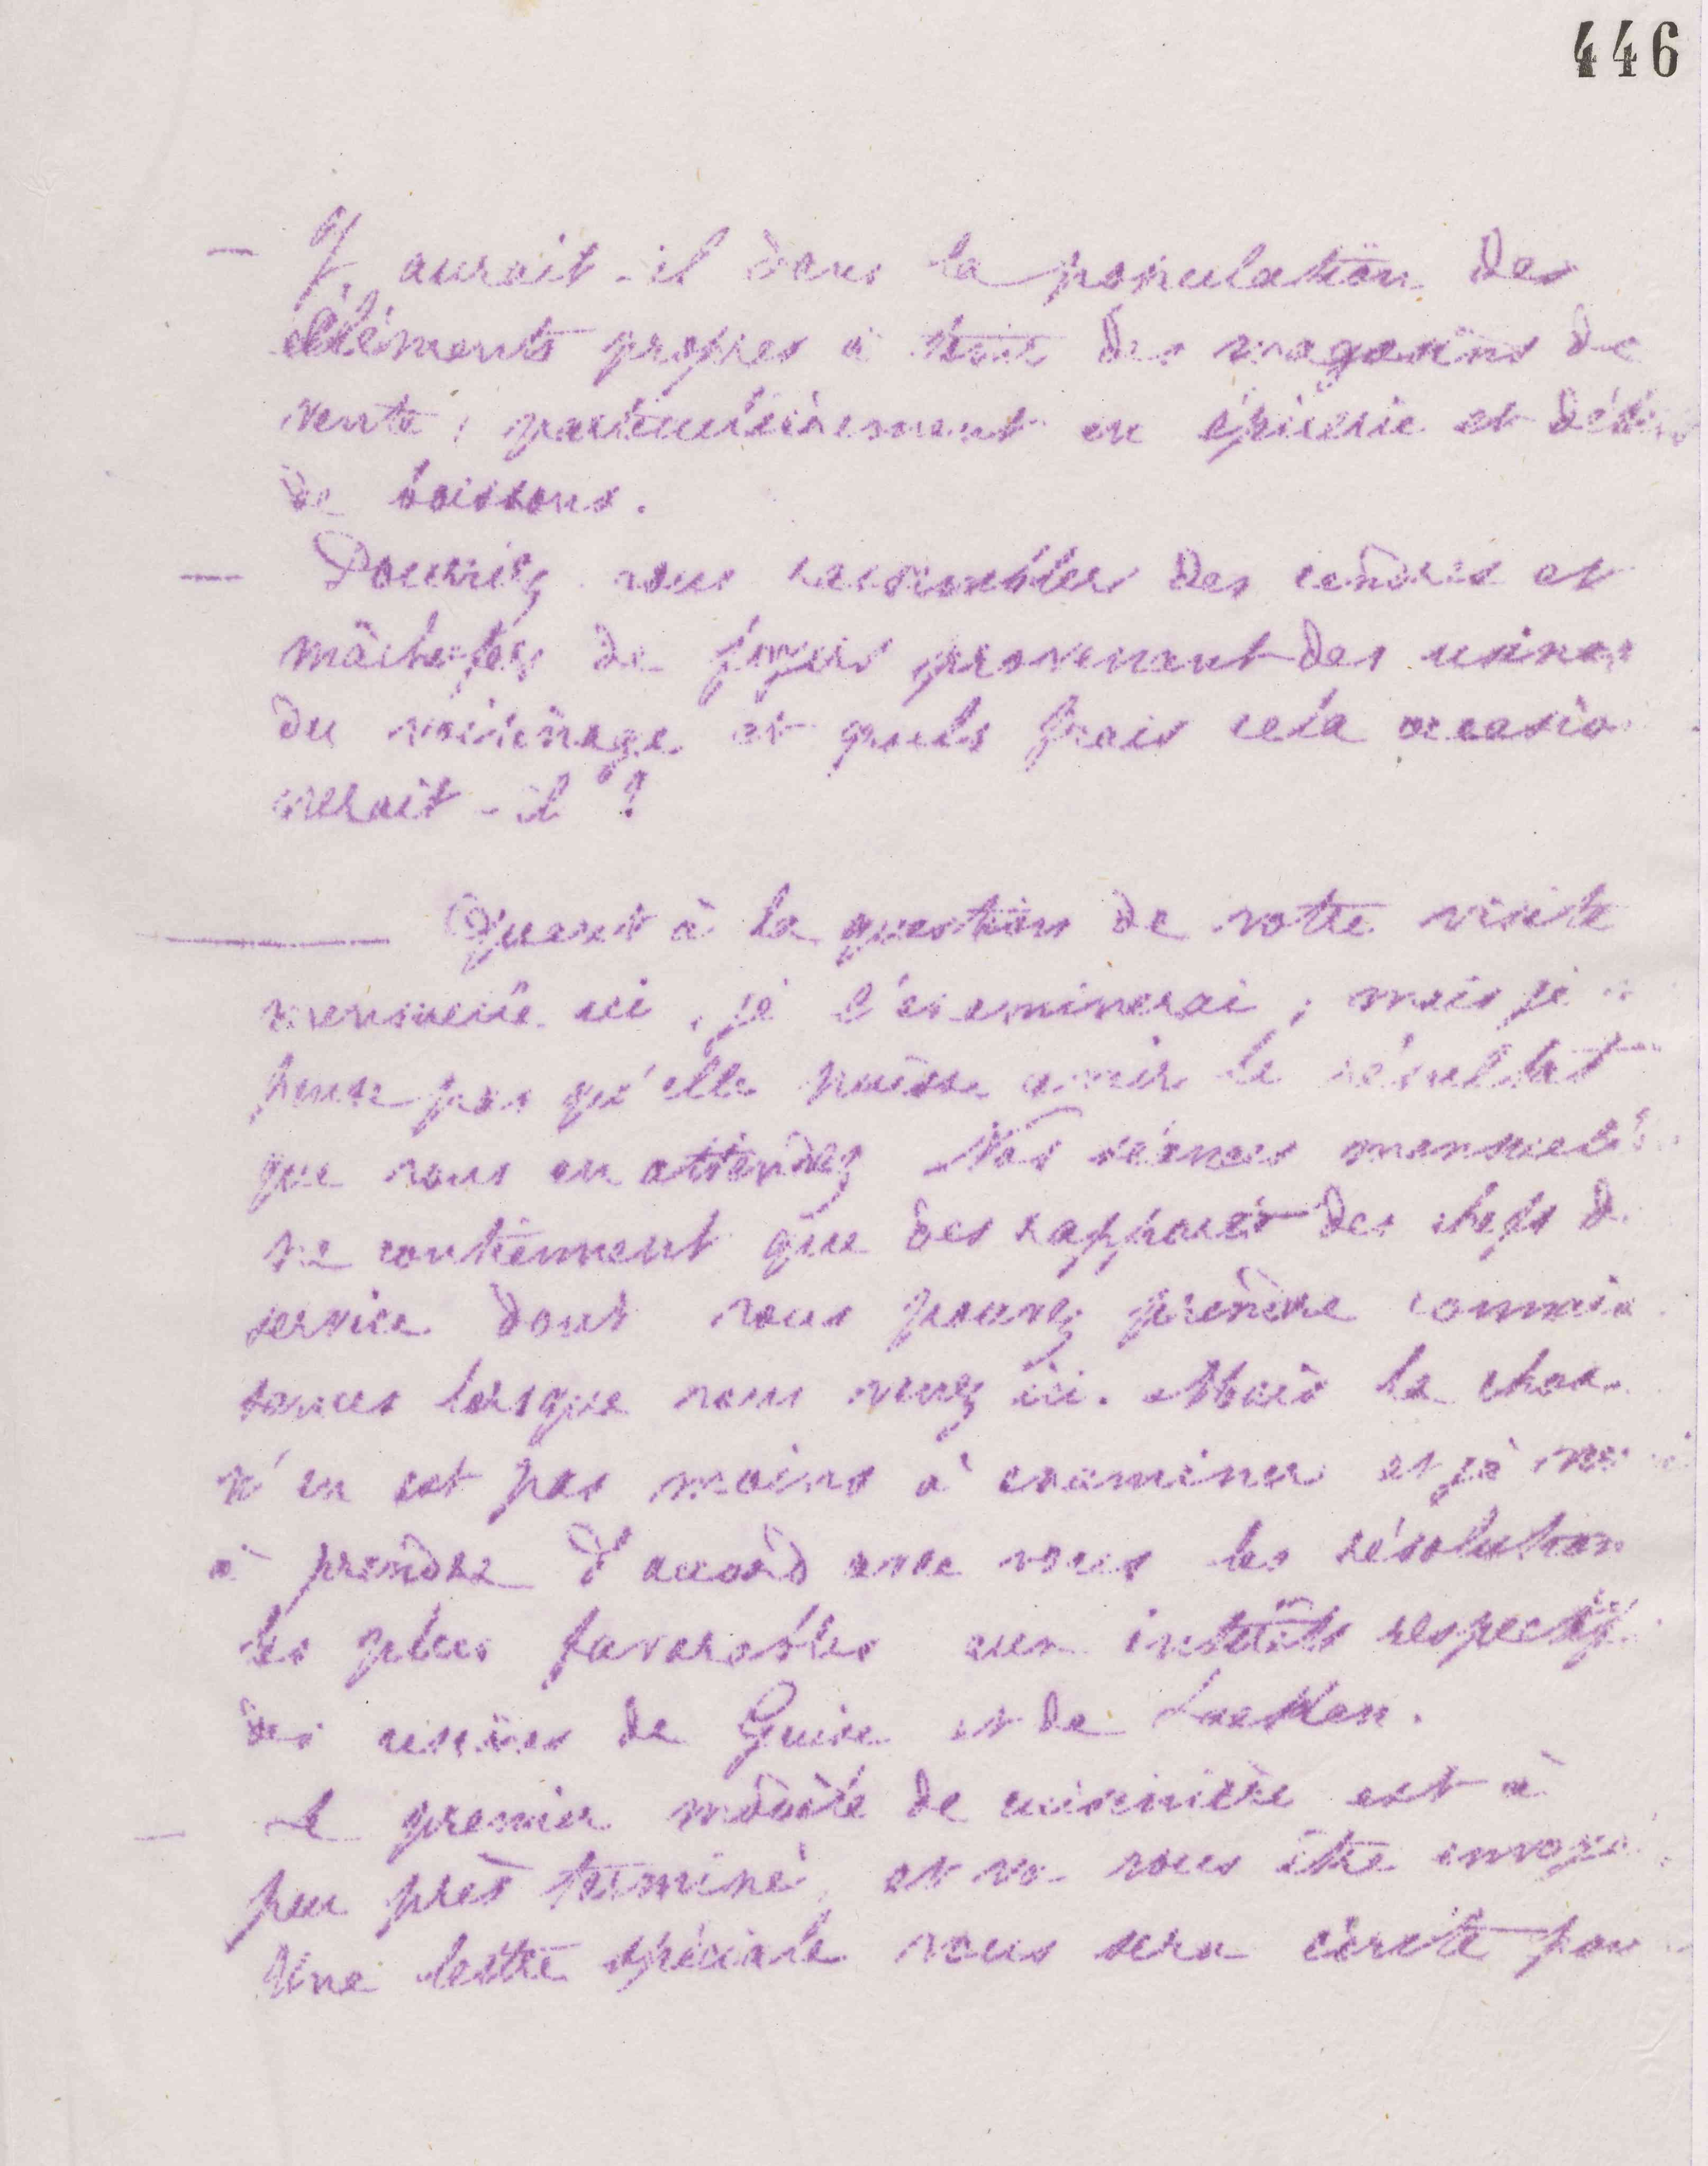 446
— Y aurait-il dans la population des
éléments propres à tenir des magasins de
vente, particulièrement en épicerie et débit
de boissons.
— Pourriez vous rassembler des cendres et
mâchefers de foyers provenant des usines
du voisinage et quels frais cela occasio
nerait-il ?
— Quant à la question de votre visite
mensuelle ici, je l'examinerai ; mais je
pense pas qu'elle puisse avoir le résultat
que vous en attendez Nos séances mensuelles
ne contiennent que des rapports des chefs de
service dont vous pouvez prendre connais
sances lorsque vous venez ici. Mais la chose
n'en est pas moins à examiner et
à prendre d'accord avec vous les résolutions
les plus favorables aux intérêts respectifs
des usines de Guise et de Laeken.
— Le premier modèle de cuisinière est à
peu près terminé, et va vous être envoyé.
Une lettre spéciale vous sera écrite pour